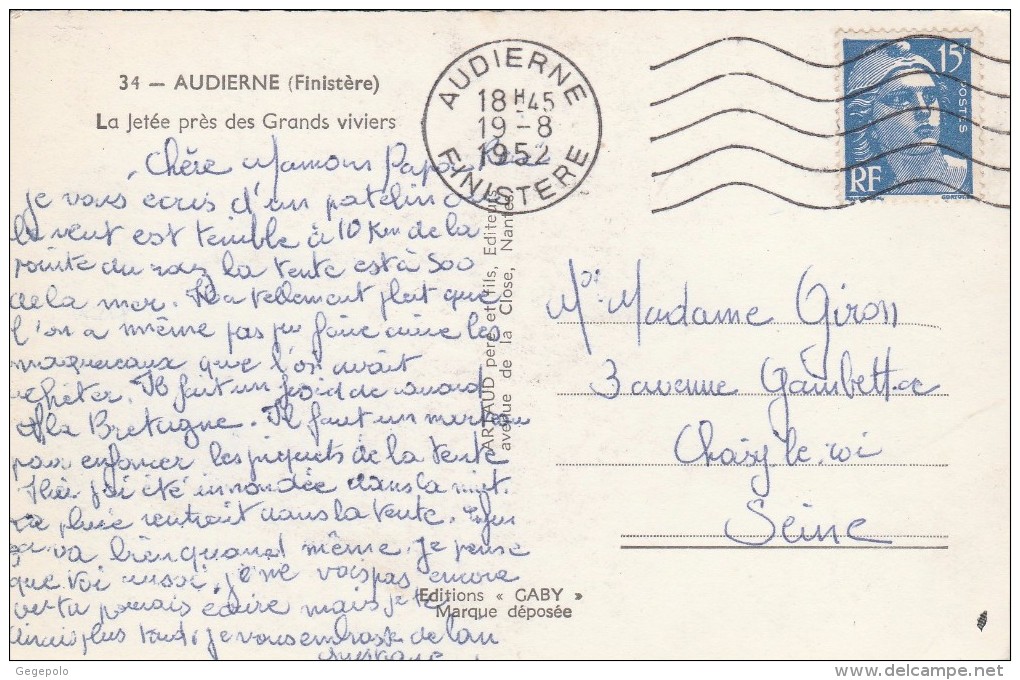 34 — AUDIERNE (Finistère)
La Jetée près des Grands viviers
Chère Maman Papa
je vous ecris d'un patelin où
le vent est terrible à 10 km de la
pointe du raz la tente est à 500
de la mer. Il a tellement plut que
l'on a même pas pu faire cuire les
maquereaux que l'on avait
acheter. Il fait un froid de canard
la Bretagne. Il faut un marteau
pour enfoncer les piquets de la tente
Hier j'ai été innondée dans la nuit.
la pluie rentrait dans la tente. Enfin
ça va bien quand même. Je pense
que toi aussi, je ne vois pas encore
où tu pourrais écrire mais je te
dirais plus tard, je vous embrasse de loin
AUDIERNE
18 H 45
19 - 8
1952
FINISTERE
15F
POSTES
RF
ARTAUD père et fils, Editeurs
avenue de la Close, Nantes
Mr Madame Giron
3 avenue Gambetta
Choisy le roi
Seine
Editions « GABY »
Marque déposée
Gegepolo
delcampe.net